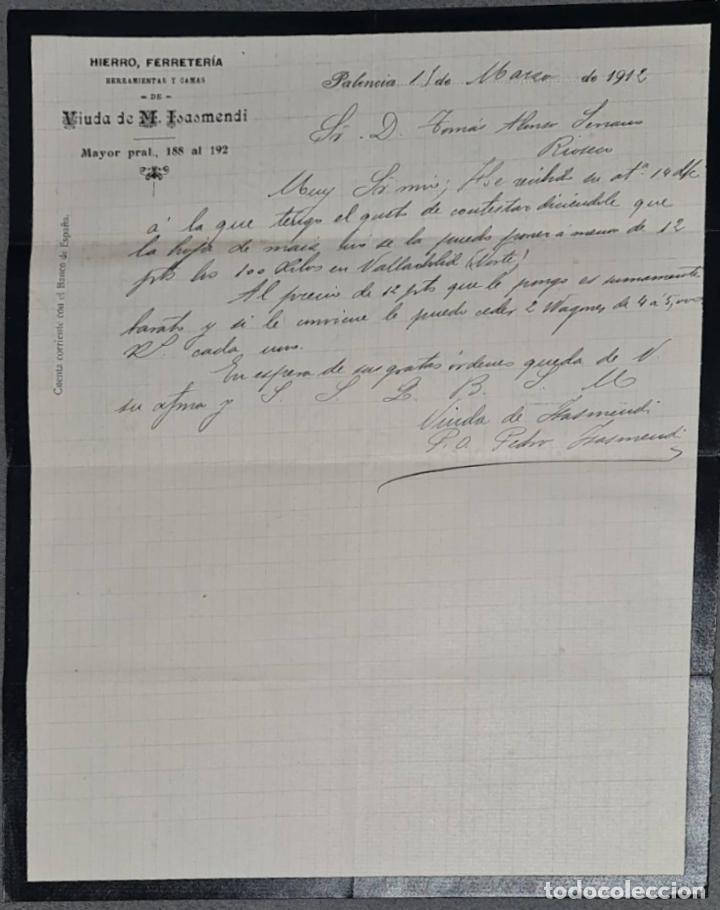 HIERRO, FERRETERÍA
HERRAMIENTAS Y CAMAS
- DE -
Viuda de M. Isasmendi
Mayor pral., 188 al 192
Cuenta corriente con el Banco de España.
Palencia 15 de Marzo de 1912
Sr. D. Tomás Alonso
Rioseco
Muy Sr. mio; He recibido su atª. 14 d/c
á la que tengo el gusto de contestar diciendole que
la hoja de maiz no se la puedo poner á menos de 12
pts los 100 Kilos en Valladolid (Norte)
Al precio de 12 pts que le pongo es sumamente
barato y si le conviene le puedo ceder 2 Wagones de 4 á 5,000
Ks. cada uno.
En espera de sus gratas órdenes queda de V
su afma y S. S. Q. B. S. M
Viuda de Isasmendi
P.O. Pedro Isasmendi
todocoleccion